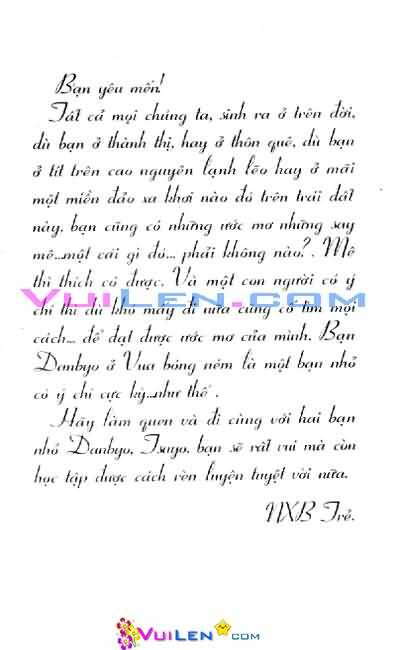 Bạn yêu mến!
Tất cả mọi chúng ta, sinh ra ở trên đời,
dù bạn ở thành thị, hay ở thôn quê, dù bạn
ở tít trên cao nguyên lạnh lẽo hay ở mãi
một miền đảo xa khơi nào đó trên trái đất
này, bạn cũng có những ước mơ những say
mê...một cái gì đó... phải không nào?. Mê
thì thích có được. Và một con người có ý
chí thì dù khó mấy đi nữa cũng cố tìm mọi
cách... để đạt được ước mơ của mình. Bạn
Danbyo ở Vua bóng ném là một bạn nhỏ
có ý chí cực kỳ...như thế .
Hãy làm quen và đi cùng với hai bạn
nhỏ Danbyo, Tsuyo, bạn sẽ rất vui mà còn
học tập được cách rèn luyện tuyệt vời nữa.
NXB Trẻ.
VuiLen.com
VuiLen.com